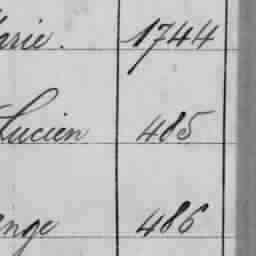 arie. 1744
Lucien 485
ange 486